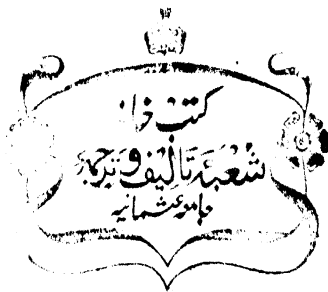 کتب خانہ
شعبۂ تالیف و ترجمہ
جامعہ عثمانیہ